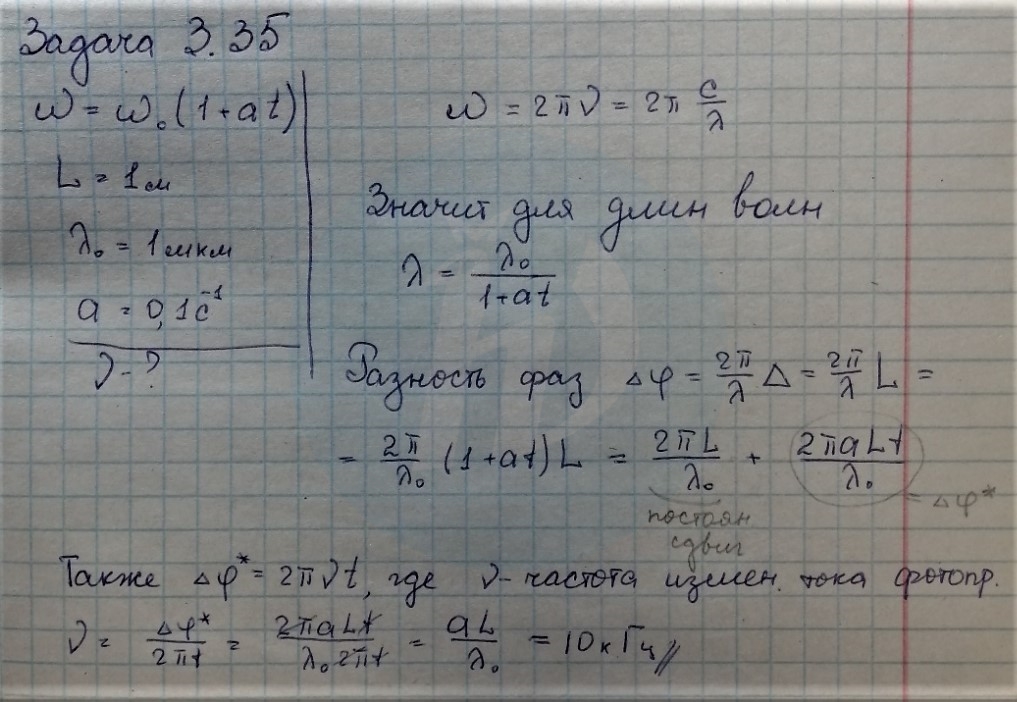 Задача 3.35
ω = ω₀(1+at)
L = 1м
λ₀ = 1мкм
a = 0,1с⁻¹
ν - ?
ω = 2πν = 2π c/λ
Значит для длин волн
λ = λ₀/(1+at)
Разность фаз Δφ = 2π/λ Δ = 2π/λ L =
= 2π/λ₀ (1+at)L = 2πL/λ₀ + 2πaLt/λ₀ = Δφ*
постоян
сдвиг
Также Δφ* = 2πνt, где ν - частота измен. тока фотопр.
ν = Δφ*/2πt = 2πaLt/λ₀2πt = aL/λ₀ = 10кГц //